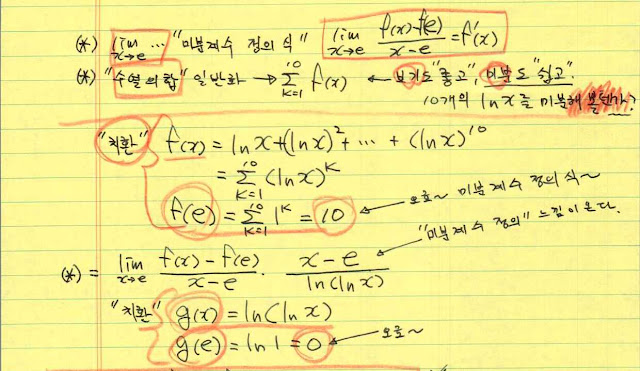 (*) lim x→e ... "미분계수 정의 식" lim x→e f(x)-f(e) / x-e = f'(x)
(*) "수열의 합" 일반화 → 10 Σ K=1 f(x) ← 보기도 "좋고", 미분도 "쉽고".
10개의 ln x를 미분해 볼텐가?
"치환" f(x) = ln x + (ln x)² + ... + (ln x)¹⁰
= 10 Σ K=1 (ln x)^K
f(e) = 10 Σ K=1 1^K = 10 ← 오호~ 미분계수 정의 식~
"미분계수 정의" 느낌이 온다.
(*) = lim x→e f(x)-f(e) / x-e · x-e / ln(ln x)
"치환" g(x) = ln(ln x)
g(e) = ln 1 = 0 ← 오호~